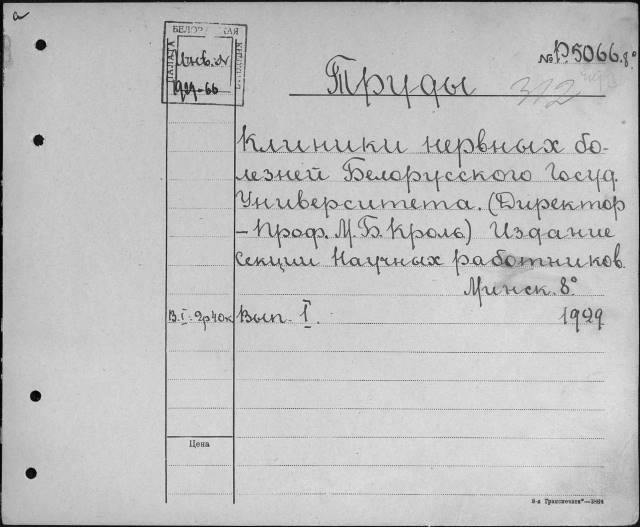 а
БЕЛОРУССКАЯ
ПАЛАТА
Инв. №
1929-66
№ Р5066.8°
Труды
312
Клиники нервных бо-
лезней Белорусского Госуд.
Университета. (Директор
- Проф. М.Б. Кроль) Издание
Секции Научных работников.
Минск. 8°
В.I-2р40к
Вып. I.
1929
Цена